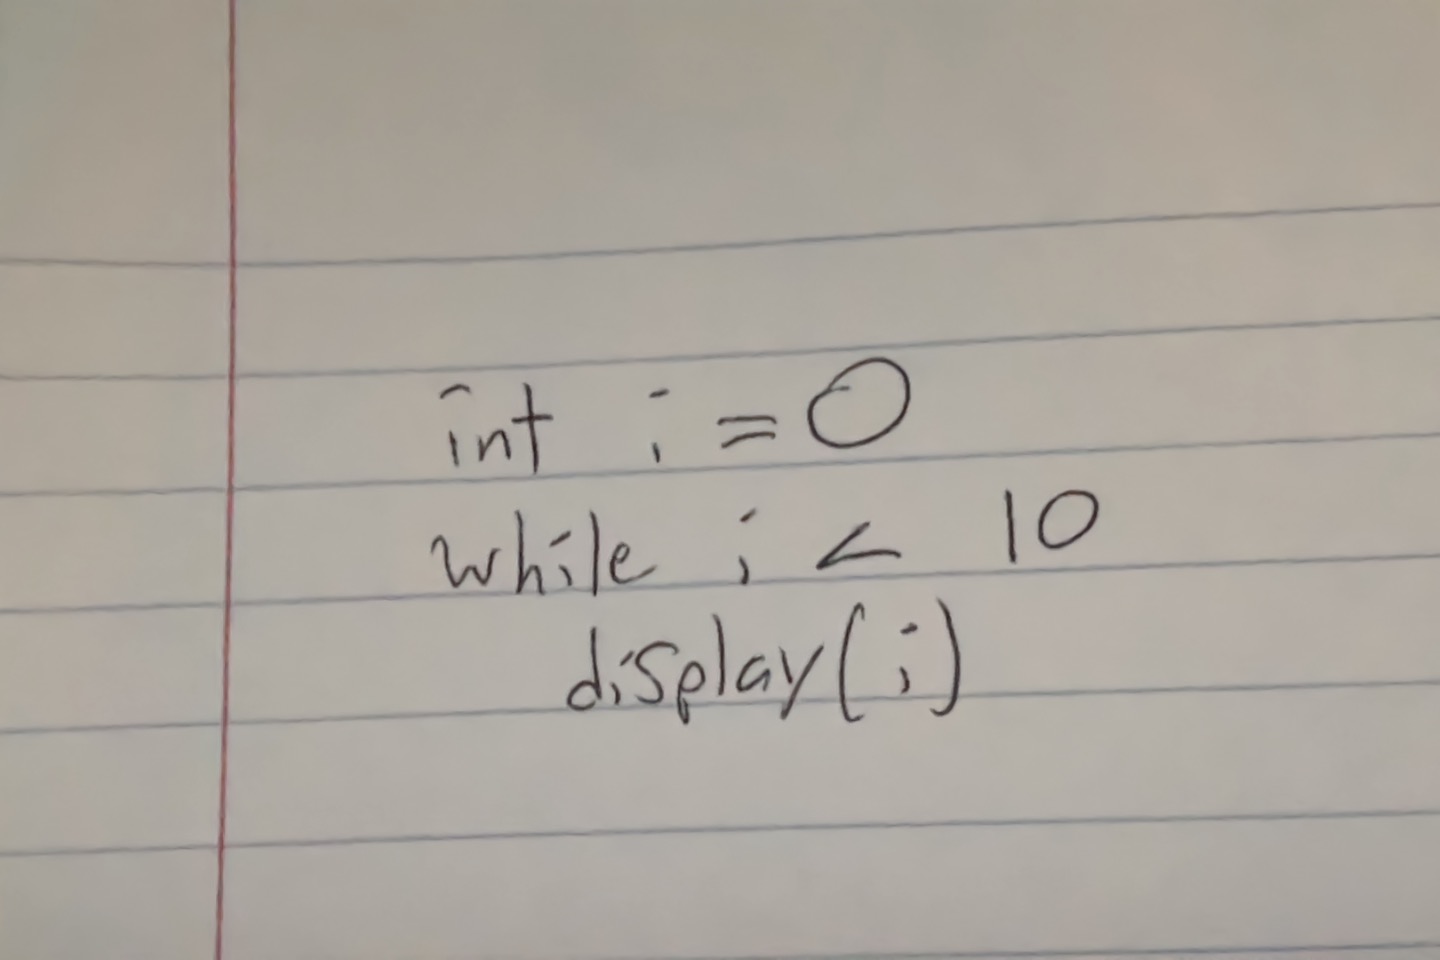 int i = 0
while i < 10
display(i)